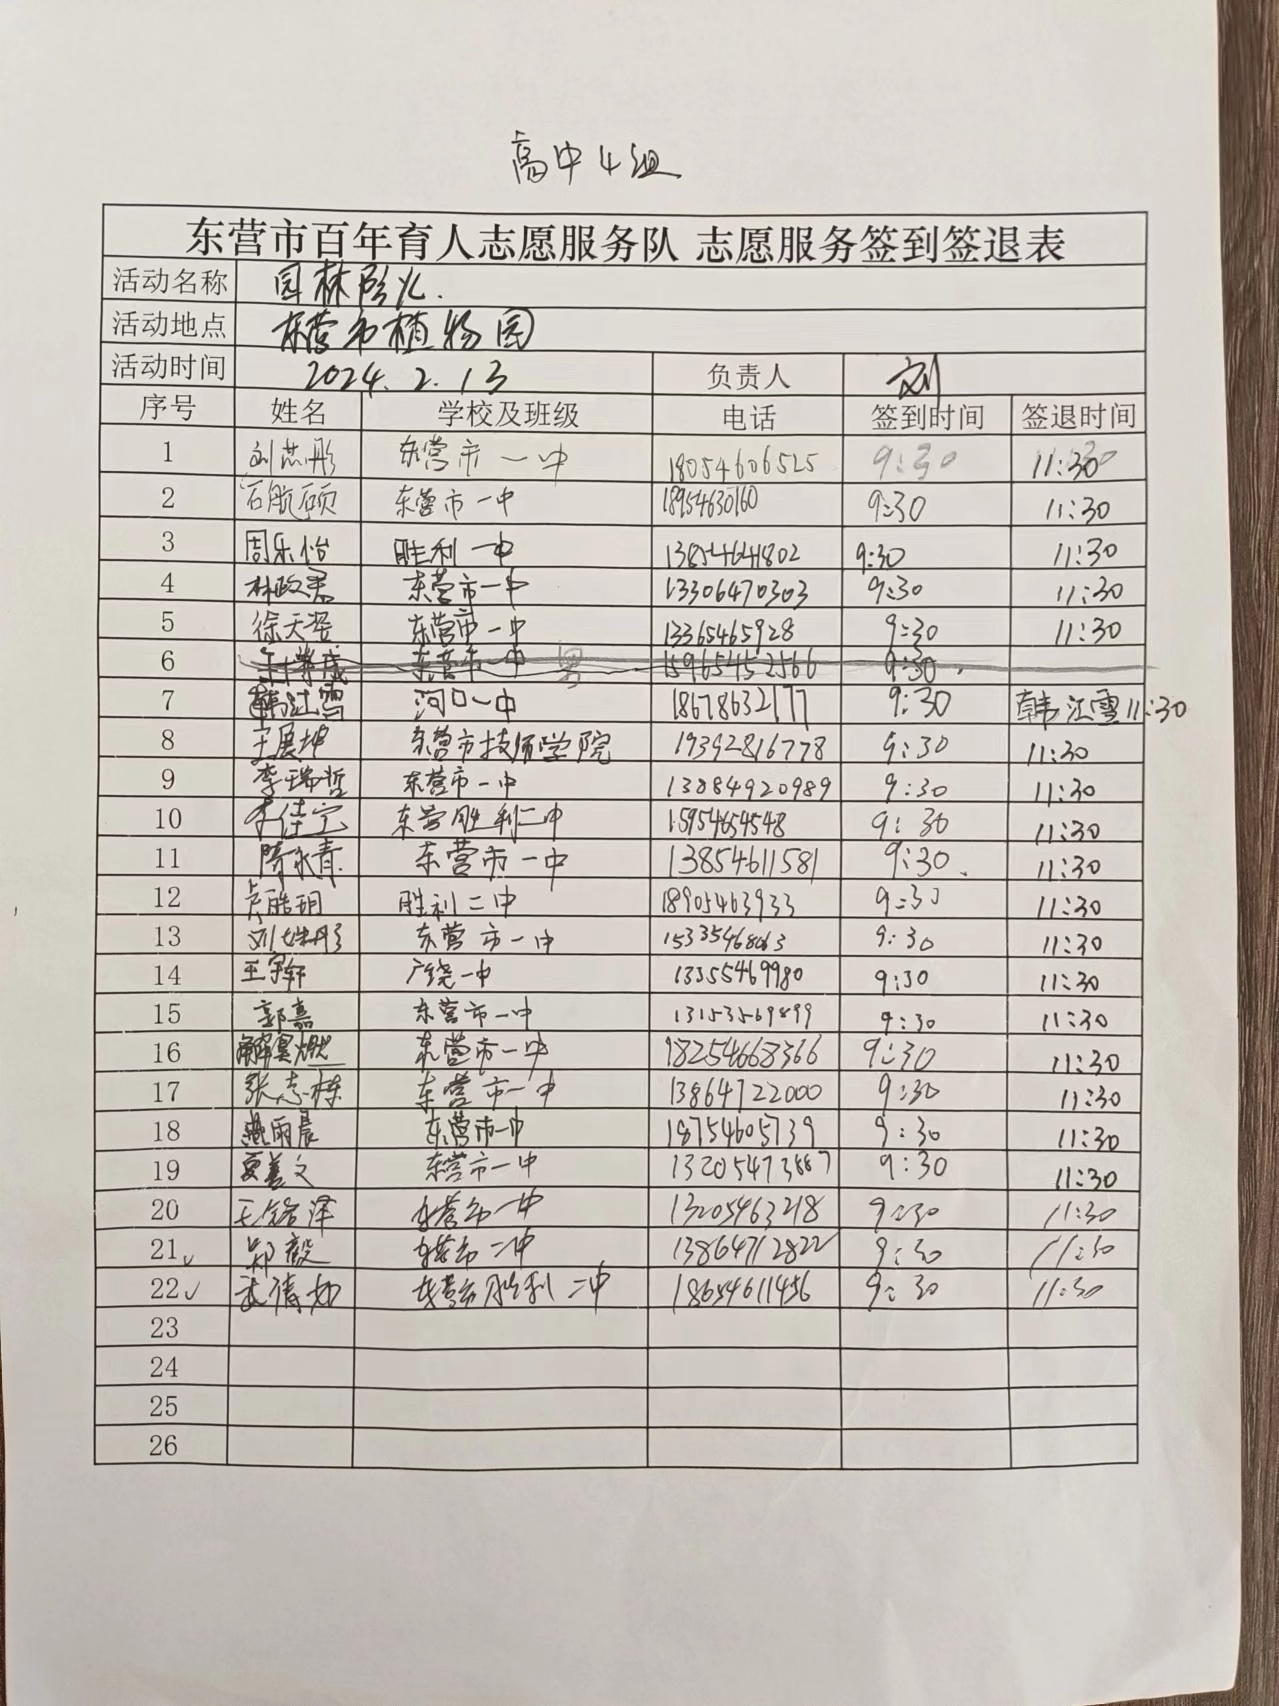 高中4组
东营市百年育人志愿服务队 志愿服务签到签退表
活动名称 园林防火.
活动地点 东营市植物园
活动时间 2024.2.13 负责人 刘
序号 姓名 学校及班级 电话 签到时间 签退时间
1 刘芯彤 东营市一中 18054606525 9:30 11:30
2 石航硕 东营市一中 18954630160 9:30 11:30
3 周乐怡 胜利一中 13854641802 9:30 11:30
4 林政君 东营市一中 13306470303 9:30 11:30
5 徐天姿 东营市一中 13365465928 9:30 11:30
6 东营市一中 男 15965452566 9:30
7 韩江雪 河口一中 18678632177 9:30 韩江雪 11:30
8 王展坤 东营市技师学院 19392816778 9:30 11:30
9 李瑞哲 东营市一中 13084920989 9:30 11:30
10 李佳宝 东营胜利二中 15954654548 9:30 11:30
11 隋永青 东营市一中 13854611581 9:30 11:30
12 皓玥 胜利二中 18905463933 9:30 11:30
13 刘姝彤 东营市一中 9:30 11:30
14 王宇轩 广饶一中 13355469980 9:30 11:30
15 郭嘉 东营市一中 13153569899 9:30 11:30
16 解昊燃 东营市一中 18254668366 9:30 11:30
17 张志栋 东营市一中 13864722000 9:30 11:30
18 燕雨晨 东营市一中 18754605739 9:30 11:30
19 夏善文 东营市一中 13205473887 9:30 11:30
20 王铭泽 东营市一中 13205463218 9:30 11:30
21 郑毅 东营市二中 13864712822 9:30 11:30
22 武倩如 东营市胜利二中 18654611456 9:30 11:30
23
24
25
26